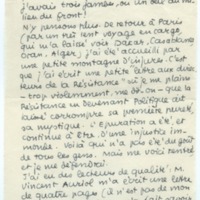 j'avais trois jambes, ou un œil au mi-
lieu du front)
N'y pensons plus. De retour à Paris
(par un très lent voyage en cargo,
qui m'a baladé vers Dakar, Casablanca
Oran, Alger), j'ai été accueilli par
une petite montagne d'injures. C'est
que j'ai écrit une petite lettre aux direc-
teurs de la Résistance" où je me plains
- trop violemment, me dit-on - que la
Résistance en devenant Politique ait
laissé corrompre sa première pureté,
sa mystique. L'épuration a été, et
continue d'être, d'une injustice im-
monde. Voilà qui n'a pas été du goût
de tous les gens. Mais me voici rentré
et je me défendrai.
J'ai eu des lecteurs de qualité : M.
Vincent Auriol m'a écrit une lettre
de quatre pages (il n'est pas de mon